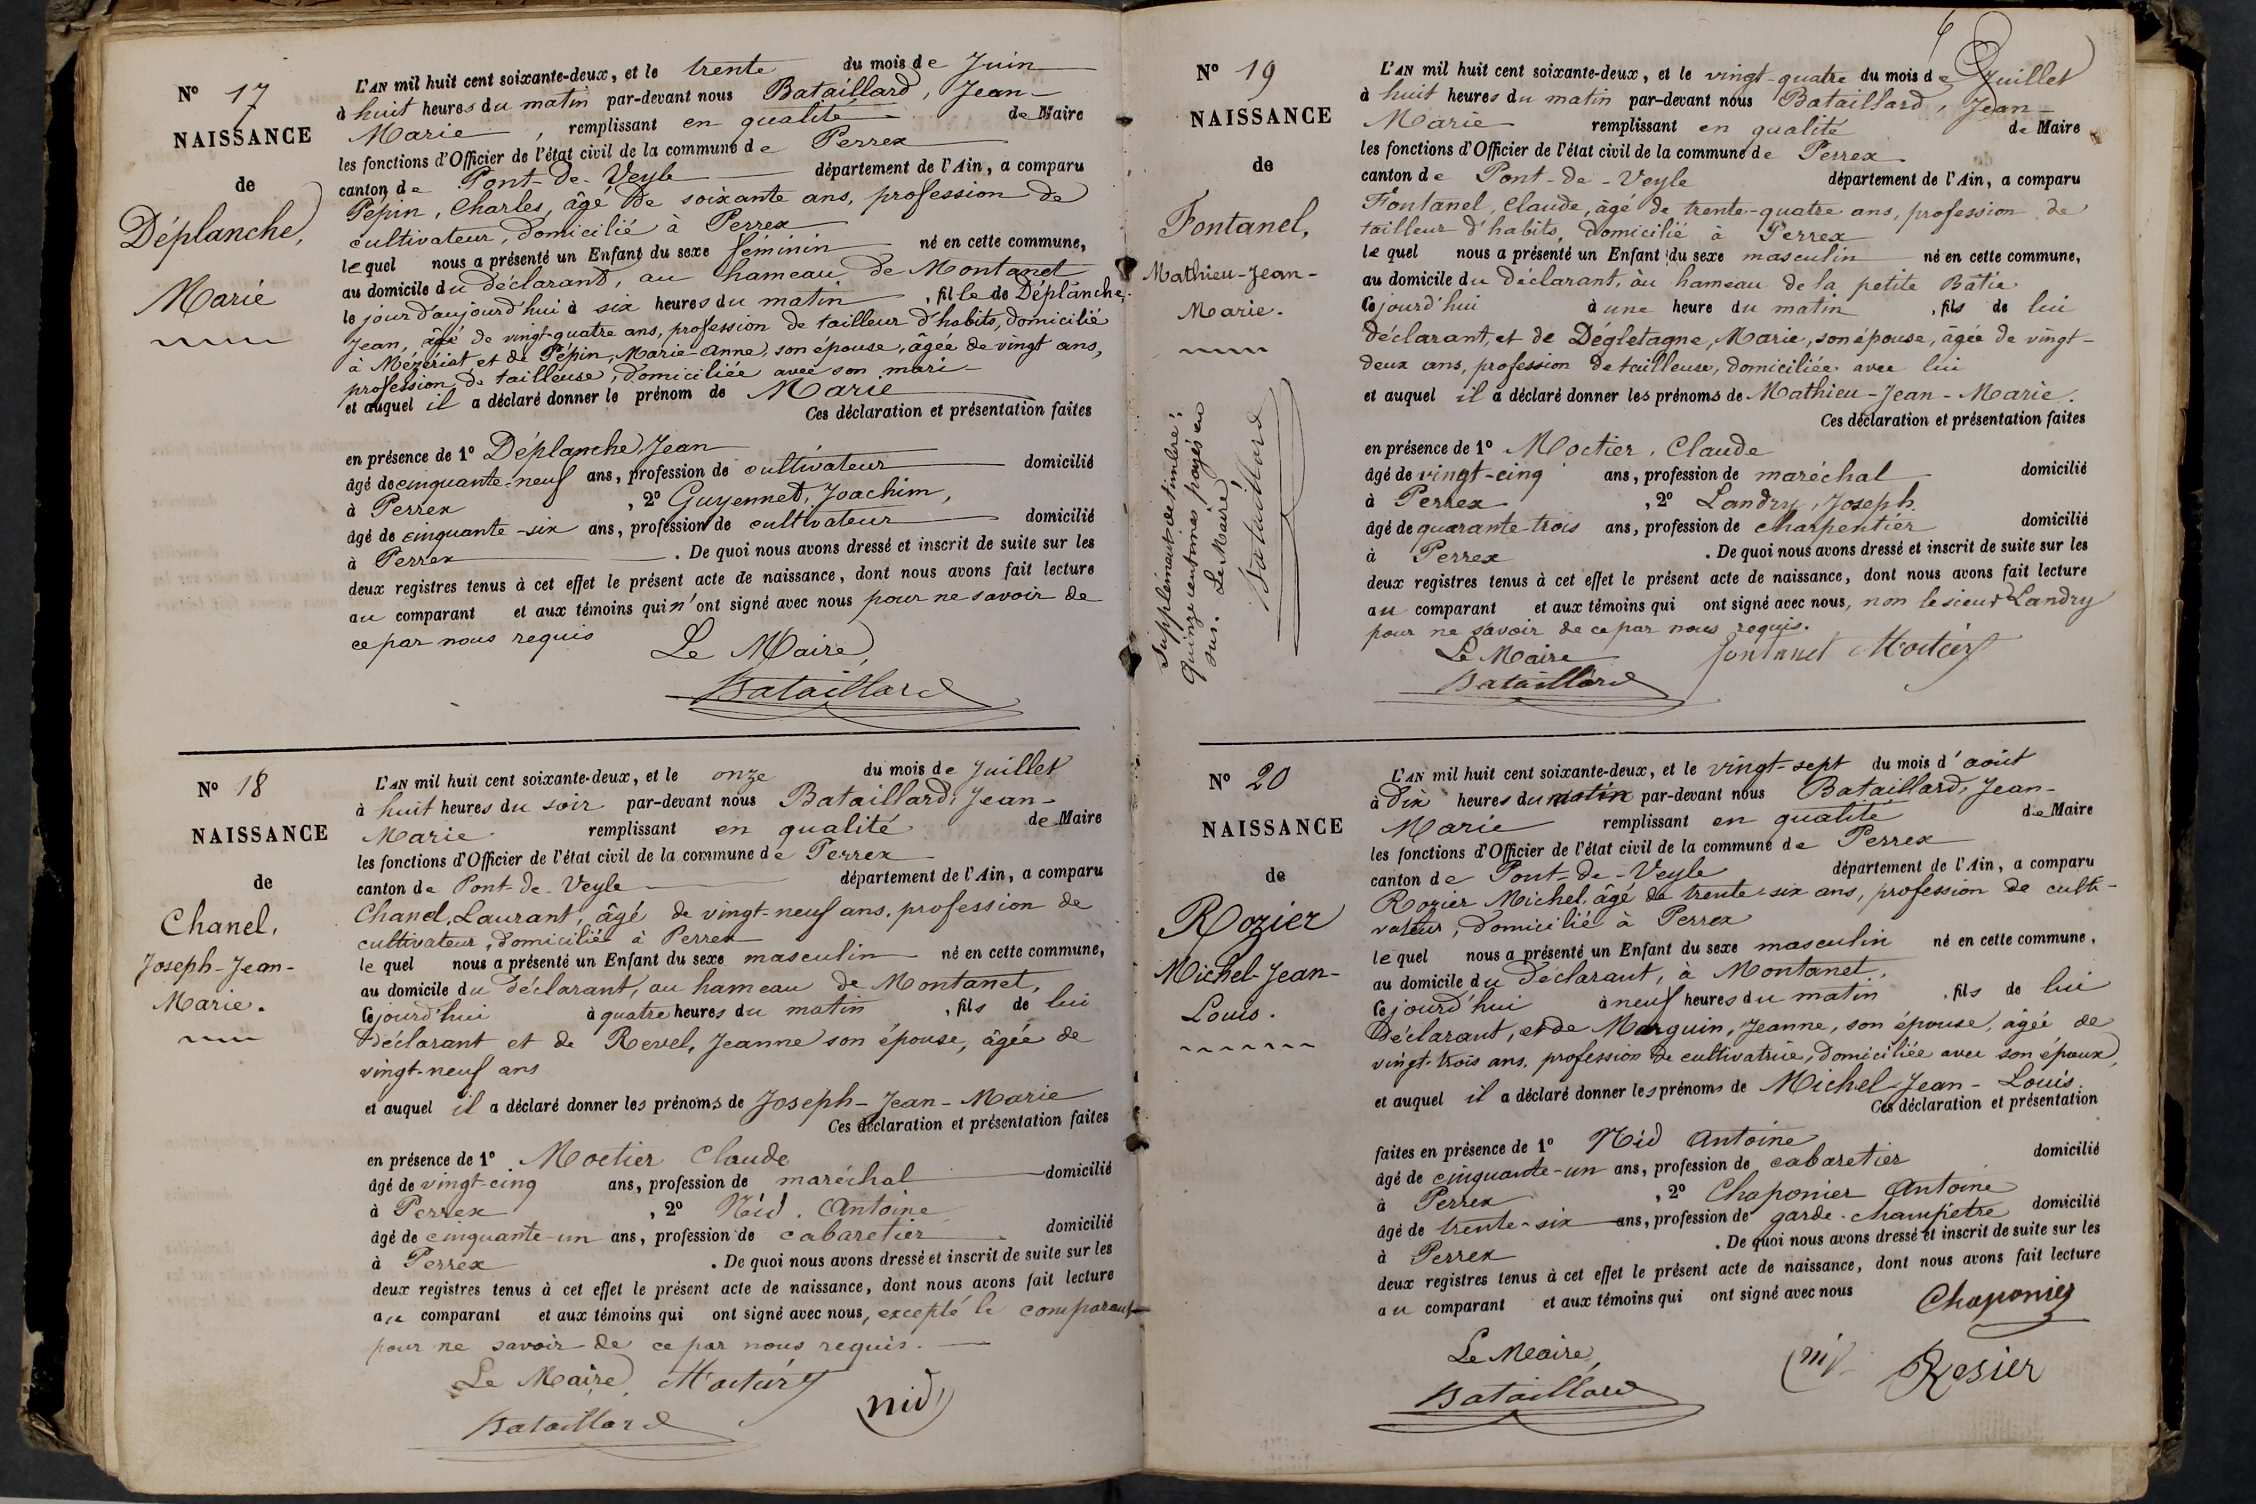 N° 17
NAISSANCE
de
Déplanche,
Marie
L'AN mil huit cent soixante-deux, et le trente du mois de Juin
à huit heures du matin par-devant nous Bataillard, Jean-
Marie, remplissant en qualité de Maire
les fonctions d'Officier de l'état civil de la commune de Perrex
canton de Pont-de-Veyle département de l'Ain, a comparu
Pépin, Charles, âgé de soixante ans, profession de
cultivateur, domicilié à Perrex
lequel nous a présenté un Enfant du sexe féminin né en cette commune,
au domicile du déclarant, au hameau de Montanet
le jour d'aujourd'hui à six heures du matin, fille de Déplanche,
Jean, âgé de vingt-quatre ans, profession de tailleur d'habits, domicilié
à Mézériat, et de Pépin, Marie-Anne, son épouse, âgée de vingt ans,
profession de tailleuse, domiciliée avec son mari-
et auquel il a déclaré donner le prénom de Marie
Ces déclaration et présentation faites
en présence de 1° Déplanche, Jean
âgé de cinquante-neuf ans, profession de cultivateur domicilié
à Perrex, 2° Guyennet, Joachim,
âgé de cinquante-six ans, profession de cultivateur domicilié
à Perrex. De quoi nous avons dressé et inscrit de suite sur les
deux registres tenus à cet effet le présent acte de naissance, dont nous avons fait lecture
au comparant et aux témoins qui n'ont signé avec nous pour ne savoir de
ce par nous requis
Le Maire,
Bataillard
N° 18
NAISSANCE
de
Chanel,
Joseph-Jean-
Marie.
L'AN mil huit cent soixante-deux, et le onze du mois de Juillet
à huit heures du soir par-devant nous Bataillard, Jean-
Marie remplissant en qualité de Maire
les fonctions d'Officier de l'état civil de la commune de Perrex
canton de Pont-de-Veyle département de l'Ain, a comparu
Chanel, Laurant, âgé de vingt-neuf ans, profession de
cultivateur, domicilié à Perrex
lequel nous a présenté un Enfant du sexe masculin né en cette commune,
au domicile du déclarant, au hameau de Montanet,
Cejourd'hui à quatre heures du matin, fils de lui
déclarant et de Revel, Jeanne son épouse, âgée de
vingt-neuf ans
et auquel il a déclaré donner les prénoms de Joseph-Jean-Marie
Ces déclaration et présentation faites
en présence de 1° Moctier Claude
âgé de vingt-cinq ans, profession de maréchal domicilié
à Perrex, 2° Nid. Antoine
âgé de cinquante-un ans, profession de cabaretier domicilié
à Perrex. De quoi nous avons dressé et inscrit de suite sur les
deux registres tenus à cet effet le présent acte de naissance, dont nous avons fait lecture
au comparant et aux témoins qui ont signé avec nous, excepté le comparant
pour ne savoir de ce par nous requis.
Le Maire, Moctier
nid
Bataillard
6
N° 19
NAISSANCE
de
Fontanel,
Mathieu-Jean-
Marie.
Supplément de timbre:
Quinze centimes payés en
sus. Le Maire
Bataillard
L'AN mil huit cent soixante-deux, et le vingt-quatre du mois de Juillet
à huit heures du matin par-devant nous Bataillard, Jean-
Marie remplissant en qualité de Maire
les fonctions d'Officier de l'état civil de la commune de Perrex
canton de Pont-de-Veyle département de l'Ain, a comparu
Fontanel, Claude, âgé de trente-quatre ans, profession de
tailleur d'habits, domicilié à Perrex
lequel nous a présenté un Enfant du sexe masculin né en cette commune,
au domicile du déclarant, au hameau de la petite Batie
Cejourd'hui à une heure du matin, fils de lui
déclarant, et de Dégletagne, Marie, son épouse, âgée de vingt-
deux ans, profession de tailleuse, domiciliée avec lui
et auquel il a déclaré donner les prénoms de Mathieu-Jean-Marie.
Ces déclaration et présentation faites
en présence de 1° Moctier, Claude
âgé de vingt-cinq ans, profession de maréchal domicilié
à Perrex, 2° Landry, Joseph
âgé de quarante-trois ans, profession de charpentier domicilié
à Perrex. De quoi nous avons dressé et inscrit de suite sur les
deux registres tenus à cet effet le présent acte de naissance, dont nous avons fait lecture
au comparant et aux témoins qui ont signé avec nous, non le sieur Landry
pour ne savoir de ce par nous requis.
Le Maire fontanel Moctier
Bataillard
N° 20
NAISSANCE
de
Rozier
Michel-Jean-
Louis.
L'AN mil huit cent soixante-deux, et le vingt-sept du mois d'août
à dix heures du matin par-devant nous Bataillard, Jean-
Marie remplissant en qualité de Maire
les fonctions d'Officier de l'état civil de la commune de Perrex
canton de Pont-de-Veyle département de l'Ain, a comparu
Rozier Michel, âgé de trente-six ans, profession de culti-
vateur, domicilié à Perrex
lequel nous a présenté un Enfant du sexe masculin né en cette commune,
au domicile du déclarant, à Montanet,
Cejourd'hui à neuf heures du matin, fils de lui
déclarant, et de Marguin, Jeanne, son épouse, âgée de
vingt-trois ans, profession de cultivatrice, domiciliée avec son époux,
et auquel il a déclaré donner les prénoms de Michel-Jean-Louis.
Ces déclaration et présentation
faites en présence de 1° Nid Antoine
âgé de cinquante-un ans, profession de cabaretier domicilié
à Perrex, 2° Chaponier Antoine
âgé de trente-six ans, profession de garde-champêtre domicilié
à Perrex. De quoi nous avons dressé et inscrit de suite sur les
deux registres tenus à cet effet le présent acte de naissance, dont nous avons fait lecture
au comparant et aux témoins qui ont signé avec nous
Chaponier
Le Maire, nid Rosier
Bataillard